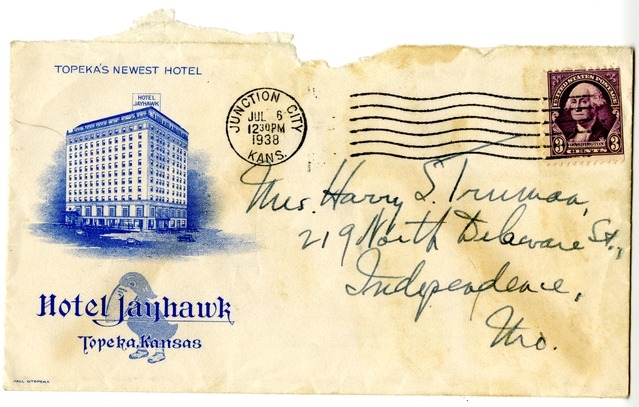 TOPEKA'S NEWEST HOTEL
HOTEL
JAYHAWK
Hotel Jayhawk
Topeka, Kansas
JUNCTION CITY
JUL 6
1230PM
1938
KANS.
UNITED STATES POSTAGE
WASHINGTON
3 CENTS 3
Mrs. Harry S. Truman,
219 North Delaware St.,
Independence,
Mo.